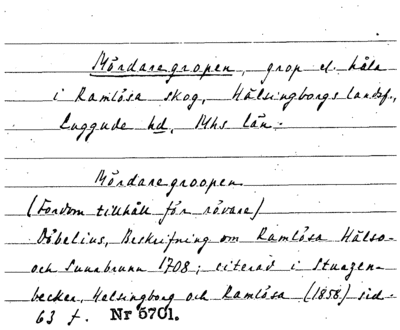 Mördaregropen, grop el. håla
i Ramlösa skog, Hälsingborgs landsf.,
Luggude hd, Mhs län.
Mördaregroopen
(Fordom tillhåll för rövare)
Döbelius, Beskrifning om Ramlösa Hälso-
och Surabrunn 1708; citerad i Sturzen-
becker, Helsingborg och Ramlösa (1858) sid.
63 f. Nr 5701.